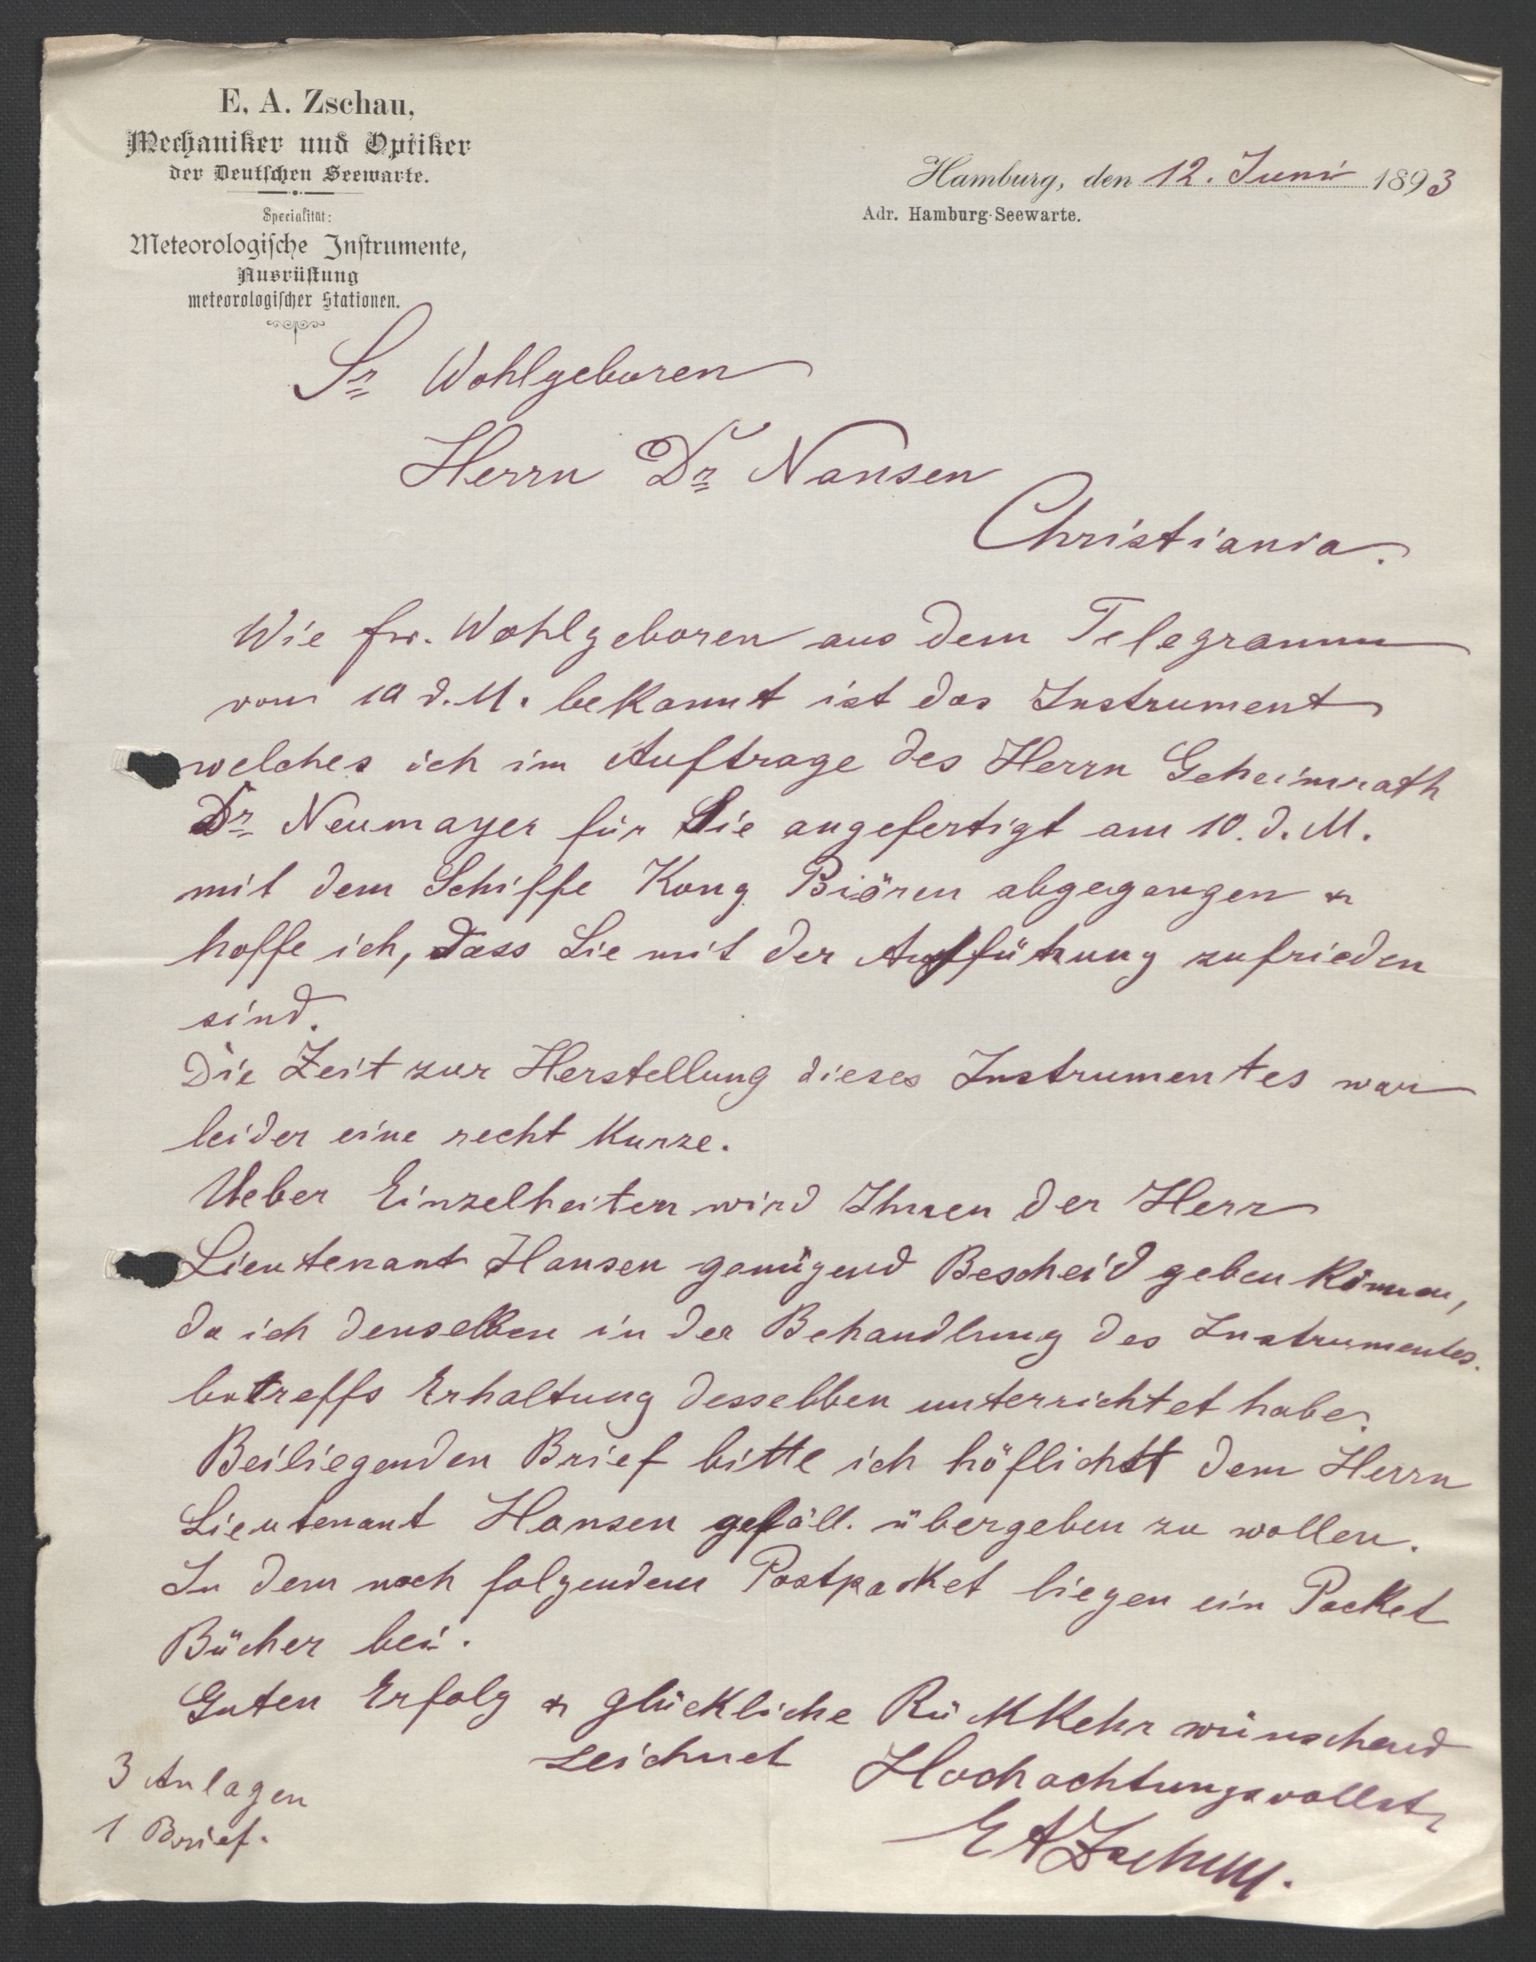 E. A. Zschau,
Mechaniker und Optiker
der Deutschen Seewarte.
Specialität:
Meteorologische Instrumente,
Ausrüstung
meteorologischer Stationen.
Hamburg, den 12. Juni 1893
Adr. Hamburg-Seewarte.
Sr Wohlgeboren
Herrn Dr Nansen
Christiania.
Wie Ew. Wohlgeboren aus dem Telegramm
vom 10 d. M. bekannt ist das Instrument
welches ich im Auftrage des Herrn Geheimrath
Dr Neumayer für Sie angefertigt am 10. d. M.
mit dem Schiffe Kong Biören abgegangen &
hoffe ich, dass Sie mit der Ausführung zufrieden
sind.
Die Zeit zur Herstellung dieses Instrumentes war
leider eine recht Kurze.
Ueber Einzelheiten wird Ihnen der Herr
Lieutenant Hansen genügend Bescheid geben können,
da ich denselben in der Behandlung des Instrumentes.
betreffs Erhaltung desselben unterrichtet habe.
Beiliegenden Brief bitte ich höflichst dem Herrn
Lieutenant Hansen gefäll. übergeben zu wollen.
In dem noch folgendem Postpacket liegen ein Packet
Bücher bei.
Guten Erfolg & glückliche Rückkehr wünschend
zeichnet Hochachtungsvollst
E A Zschau.
3 Anlagen
1 Brief.